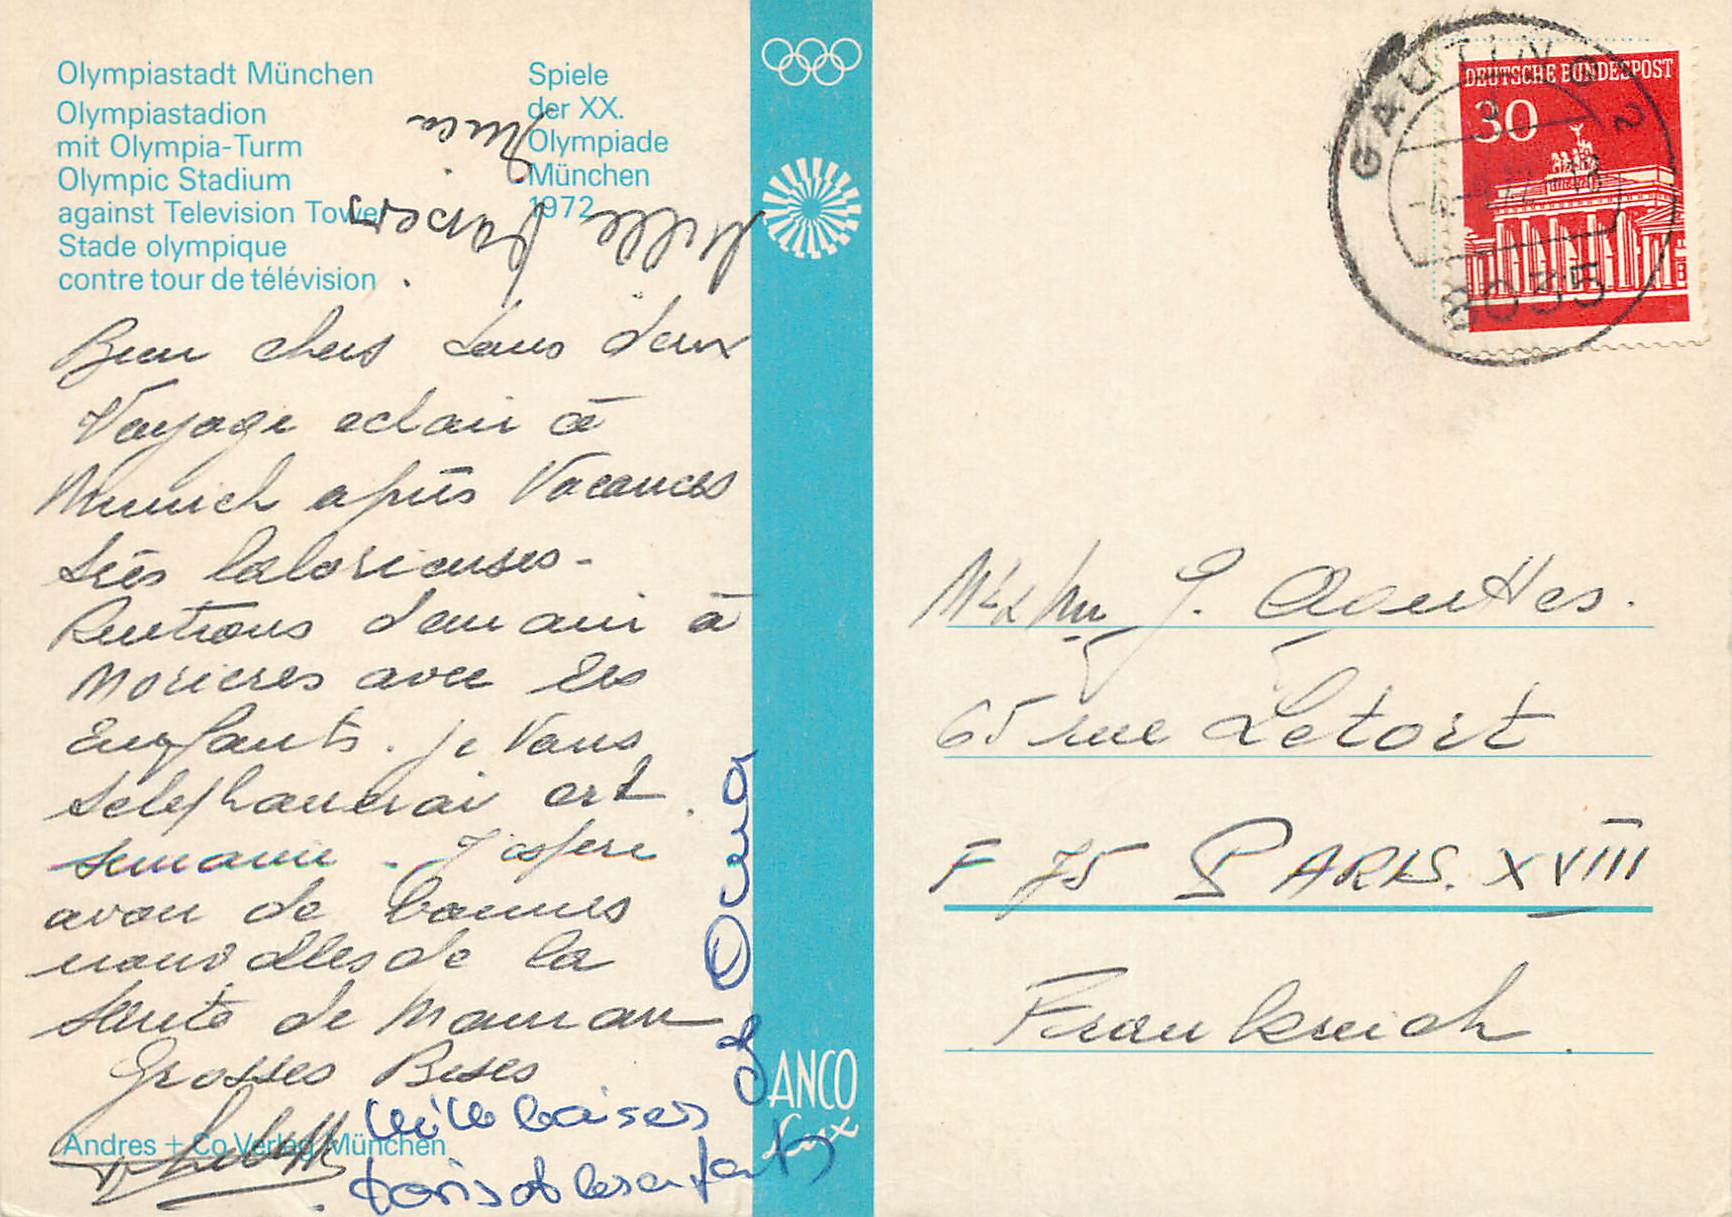 Olympiastadt München
Olympiastadion
mit Olympia-Turm
Olympic Stadium
against Television Tower
Stade olympique
contre tour de télévision
Spiele
der XX.
Olympiade
München
1972
Mille Baisers
Bien chers tous deux
Voyage eclair à
Munich après Vacances
très laborieuses -
Rentrons demain à
Morieres avec les
Enfants. Je Vous
telephonerai cet
semaine - J'espere
avoir de bonnes
nouvelles de la
Sante de Maman
Grosses Bises
mille baisers
Andres + Co Verlag München
Boris et les enfants
ANCO
lux
DEUTSCHE BUNDESPOST
30
GAUTING 2
8035
Mr & Mm J. Aguttes.
65 rue Letort
F 75 PARIS. XVIII
Frankreich.